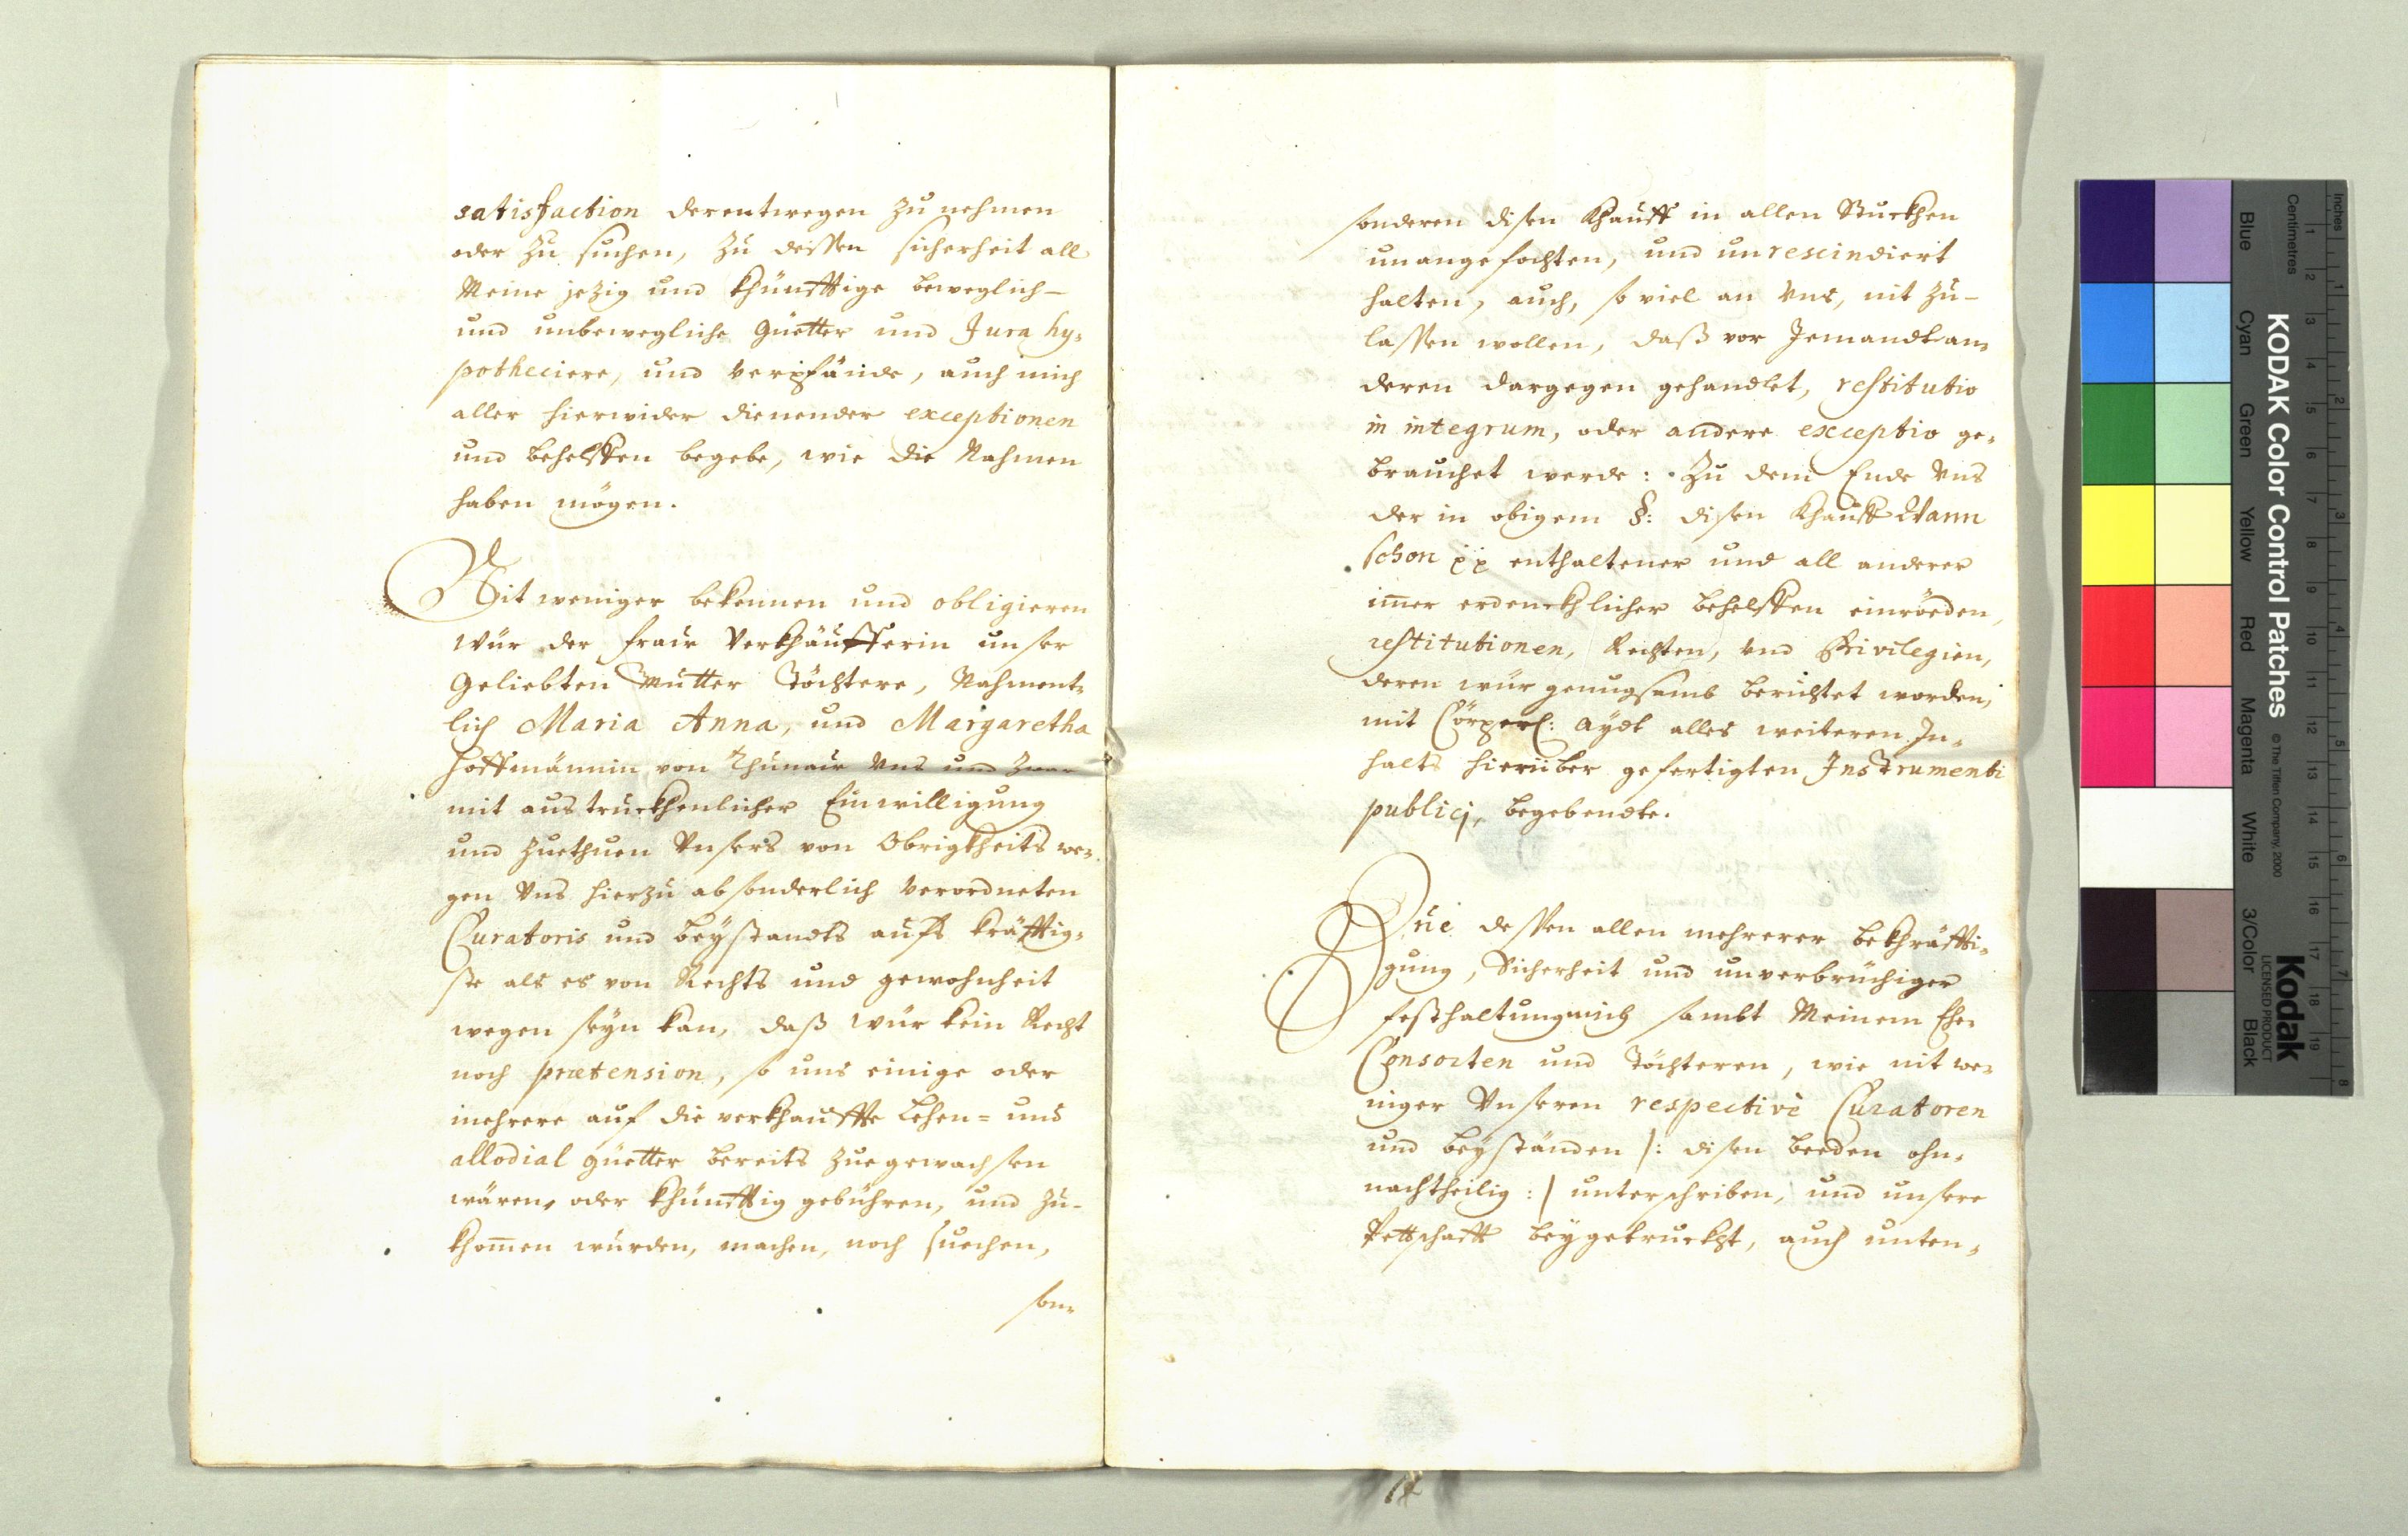 satisfaction derentwegen zu nehmen
oder zu suchen, zu dessen sicherheit all
Meine jezig und khünfftige beweglich-
und unbewegliche Güetter und Jura hy-
potheciere, und verpfände, auch mich
aller hierwider dienender exceptionen
und behelffen begebe, wie die Nahmen
haben mögen.
Nit weniger bekennen und obligieren
Wür der fraun Verkhäufferin unser
Geliebten Mutter Töchtere, Nahment-
lich Maria Anna, und Margaretha
Hoffmännin von Thunau Vns und zwar
mit austruckhenlicher Einwilligung
und Zuethuen Vnsers von Obrigkheits we-
gen Vns hierzu absonderlich verordneten
Curatoris und beystandts aufs kräfftig-
ste als es von Rechts und gewohnheit
wegen seyn kan, daß Wür kein Recht
noch prætension, so uns einige oder
mehrere auf die verkhauffte Lehen= und
allodial güetter bereits zuegewachsen
wären, oder khünfftig gebühren, und zu-
khom̄en würden, machen, noch suechen,
son-
sonderen disen Khauff in allen Stuckhen
unangefochten, und unrescindiert
halten, auch, so viel an Vns, nit zu-
lassen wollen, daß vor Jemandt an-
deren dargegen gehandlet, restitutio
in integrum, oder andere exceptio ge-
brauchet werde: Zu dem Ende Vns
der in obigem §: disen Khauff Wann
schon xx enthaltener und all anderer
im̄er erdenckhlicher behelffen einröden,
restitutionen, Rechten, und Privilegien,
deren wür genugsamb berichtet worden,
mit Cörperl: Aydt alles weiteren In-
halts hierüber gefertigten Instrumenti
publicj, begebendte.
Zue dessen allen mehrerer bekhräffti-
gung, Sicherheit und unverbrüchiger
festhaltung mich sambt Meinem Ehe-
Consorten und Töchteren, wie nit we-
niger Vnseren respectivè Curatoren
und beyständen /: disen beeden ohn-
nachtheilig :/ unterschriben, und unsere
Pettschafft beygetruckht, auch unten-
Inches
Centimetres
1 2 3 4 5 6 7 8 9 10 11 12 13 14 15 16 17 18 19
1 2 3 4 5 6 7 8
Blue Cyan Green Yellow Red Magenta White 3/Color Black
KODAK Color Control Patches
© The Tiffen Company, 2000
Kodak
LICENSED PRODUCT